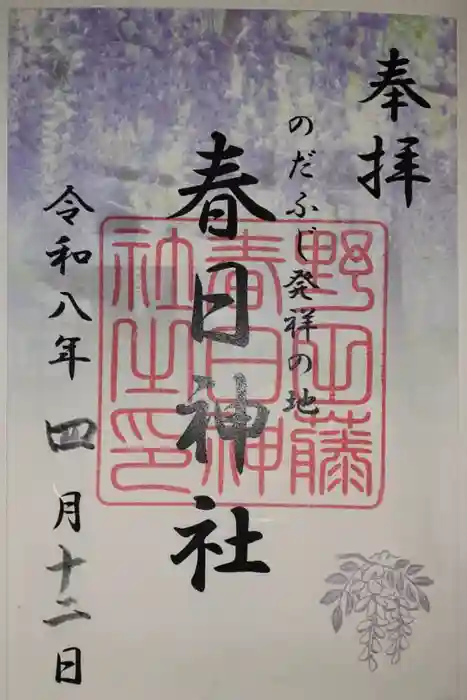 奉拝
のだふじ発祥の地
春日神社
令和八年 四月十二日
野田藤
春日神
社之印